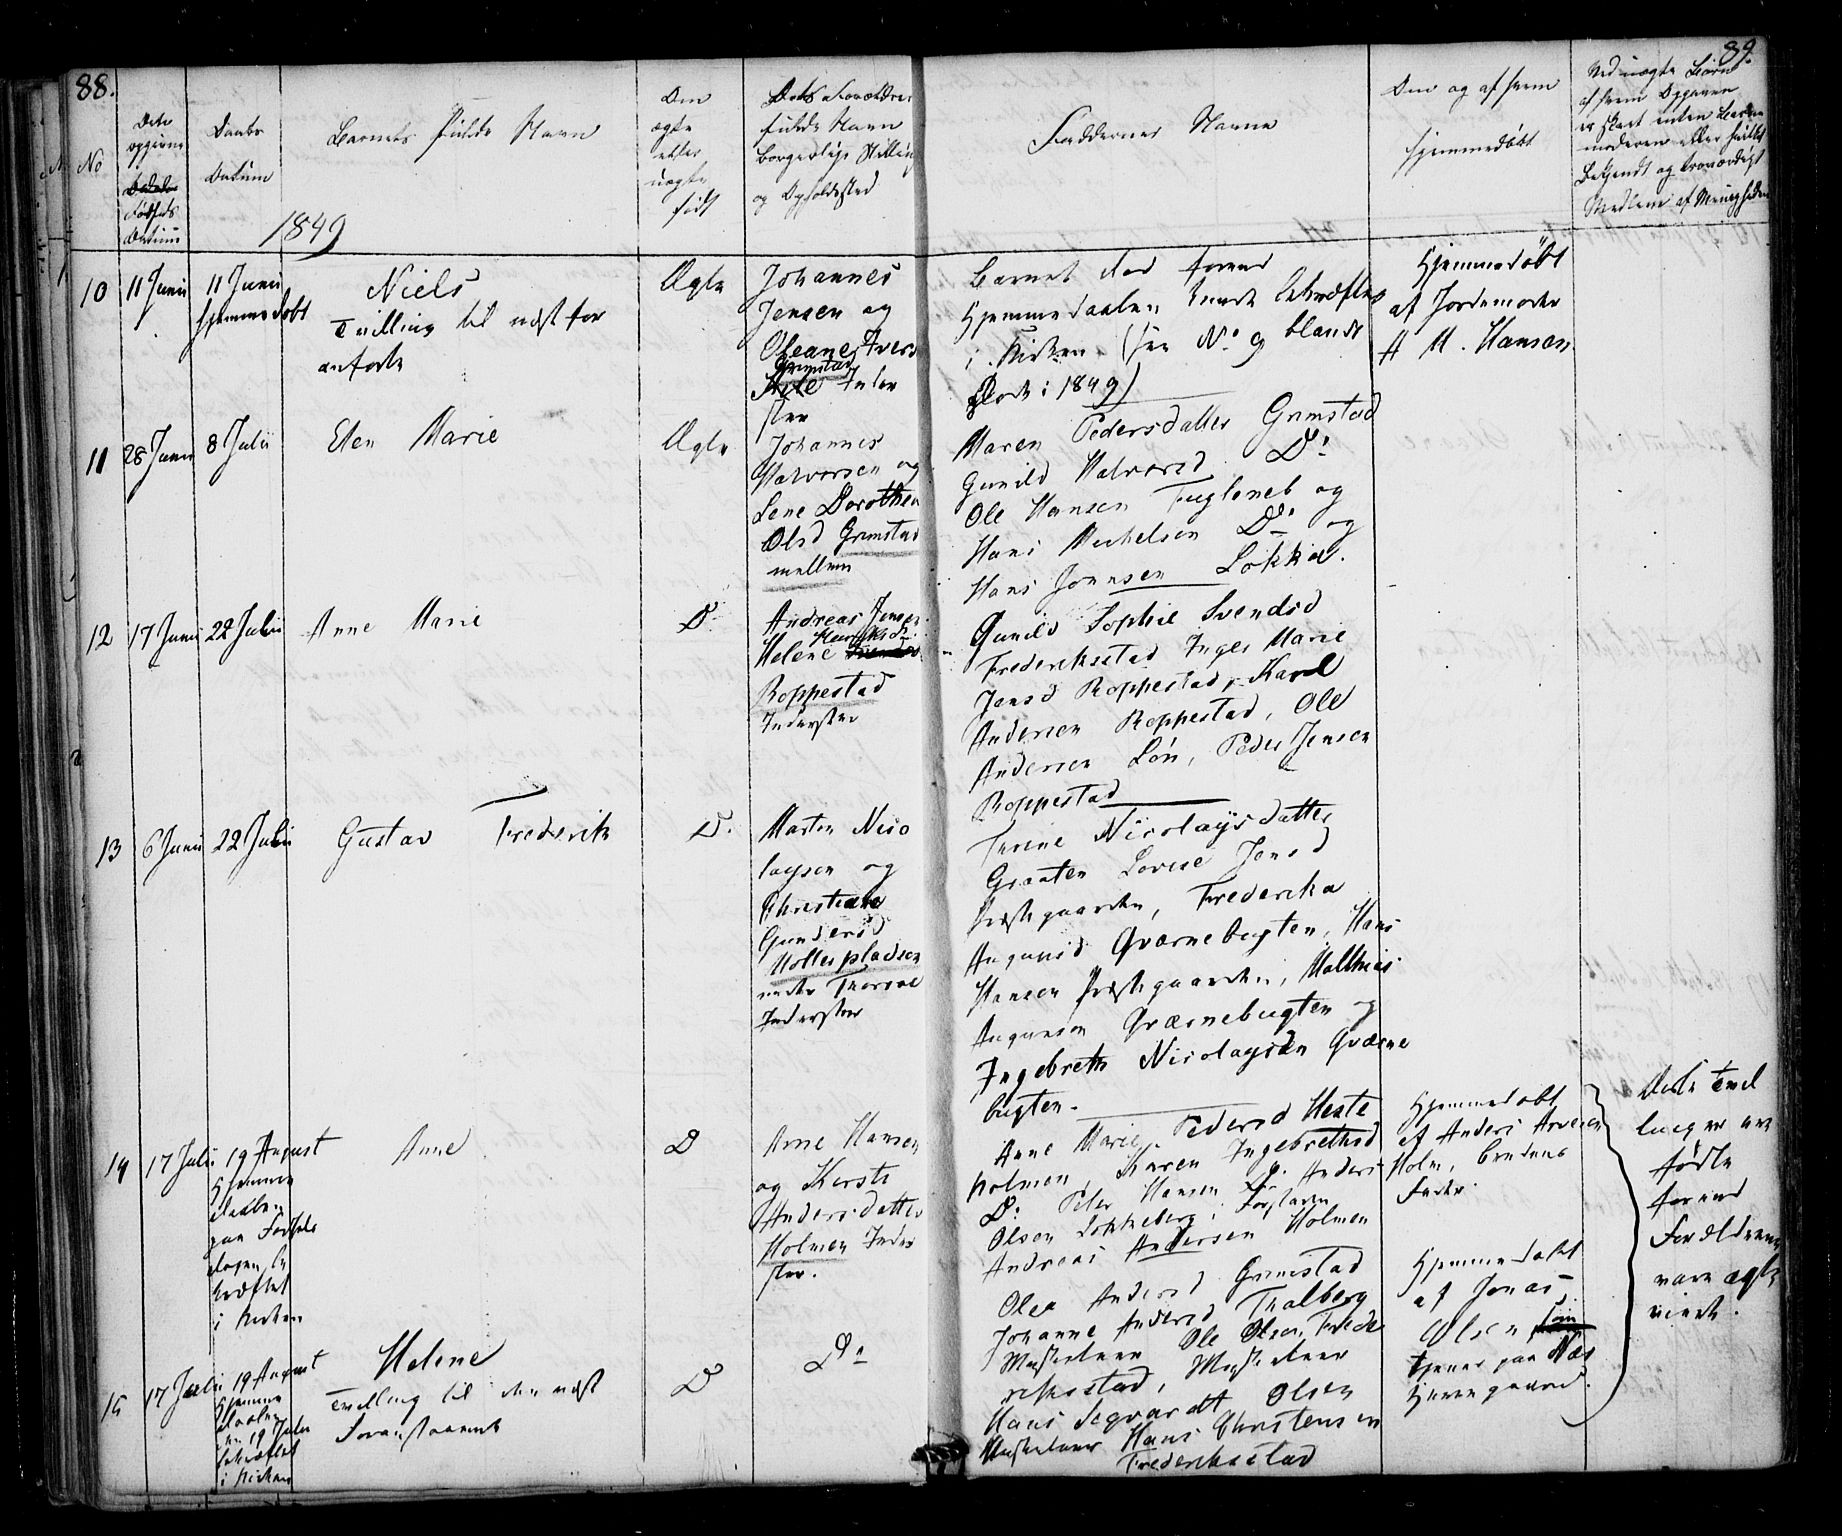 88.
89.
No
Dets
opgivne
Fødsels
Datum
Daabs
Datum
Barnets fulde Navn
1849
Om
ægte
eller
uægte
født
Dets Forældres
fulde Navn
borgerlige Stilling
og Opholdssted
Faddernes Navne
Om og af hvem
hjemmedøbt
Ved uægte Børn
af hvem Opgaven
er skeet enten Barne
moderen eller hvilket
bekjendt og troværdigt
Medlem af Menigheden
10
11 Junii
11 Junii
hjemmedøbt
Niels
Tvilling til næst for
anførte
Ægte
Johannes
Jensen og
Oleane Ivers
Grimstad
Inder
ster
Barnet død forend
Hjemmedaaben kunde bekræftes
i Kirken (see No 9 blandt
Døde i 1849)
Hjemmedöbt
af Jordemoder
A M. Hansen
11
28 Junii
8 Julii
Elen Marie
Ægte
Johannes
Halvorsen og
Lene Dorothea
Olsd Grimstad
mellem
Maren Pedersdatter Grimstad
Gunild Halvorsd Do
Ole Hansen Fugleneb og
Hans Michelsen Do og
Hans Jonnsen Løkka.
12
17 Junii
22 Julii
Anne Marie
D
Andreas Jensen
Helene
Roppestad
Inderster
Gunild Sophie Svendsd
Frederiksstad Inger Marie
Jensd Roppestad, Karl
Andersen Roppestad, Ole
Andersen Lön, Peder Jensen
Roppestad
13
6 Junii
22 Julii
Gustav Frederik
D.
Morten Nico
laysen og
Christiane
Gundersd
Møllerpladsen
under Thorsøe
Inderster
Thrine Nicolaysdatter
Graaten Lovise Jensd
Præstegaarden, Frederika
Augunsd Qværnebugten, Hans
Hansen Præstegaarden, Matthias
Augunsen Qværnebugten og
Ingebreth Nicolaysen Qværne
bugten.
14
17 Juli
19 August
Hjemme
daaben
paa Fødsels
dagen be
kræftet
i Kirken
Anne
D
Arne Hansen
og Kersti
Andersdatter
Holmen Inder
ster.
Anne Marie Pedersd Heste
holmen, Karen Ingebrethsd
Do Peter Hansen Do Anders
Olsen Løkkeberg,
Andreas Andersen Holmen
Hjemmedøbt
af Anders Arvesen
Holm,
Fader
Disse Tvil
linger ere
fødte
forend
Forældrene
vare ægte
viede.
15
17 Julii
19 August
Hjemme
daaben
den 19 Julii
bekræftet
i Kirken
Helene
Tvilling til den næst
foranstaaende
D
Do
Olea Andersd Grimstad
Johanne Andersd Thalberg
Ole Olsen Frede
rikstad,
Hans Segvardt Olsen
Hans Christensen
Frederiksstad
Hjemmedøbt
af Jonas
Olsen
tjener paa Næs
Herregaard.